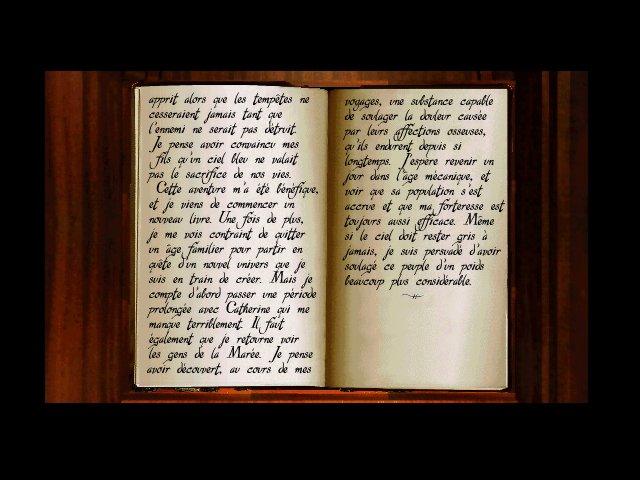 apprit alors que les tempêtes ne
cesseraient jamais tant que
l'ennemi ne serait pas détruit.
Je pense avoir convaincu mes
fils qu'un ciel bleu ne valait
pas le sacrifice de nos vies.
Cette aventure m'a été bénéfique,
et je viens de commencer un
nouveau livre. Une fois de plus,
je me vois contraint de quitter
un âge familier pour partir en
quête d'un nouvel univers que je
suis en train de créer. Mais je
compte d'abord passer une période
prolongée avec Catherine qui me
manque terriblement. Il faut
également que je retourne voir
les gens de la Marée. Je pense
avoir découvert, au cours de mes
voyages, une substance capable
de soulager la douleur causée
par leurs affections osseuses,
qu'ils endurent depuis si
longtemps. J'espère revenir un
jour dans l'âge mécanique, et
voir que sa population s'est
accrue et que ma forteresse est
toujours aussi efficace. Même
si le ciel doit rester gris à
jamais, je suis persuadé d'avoir
soulagé ce peuple d'un poids
beaucoup plus considérable.